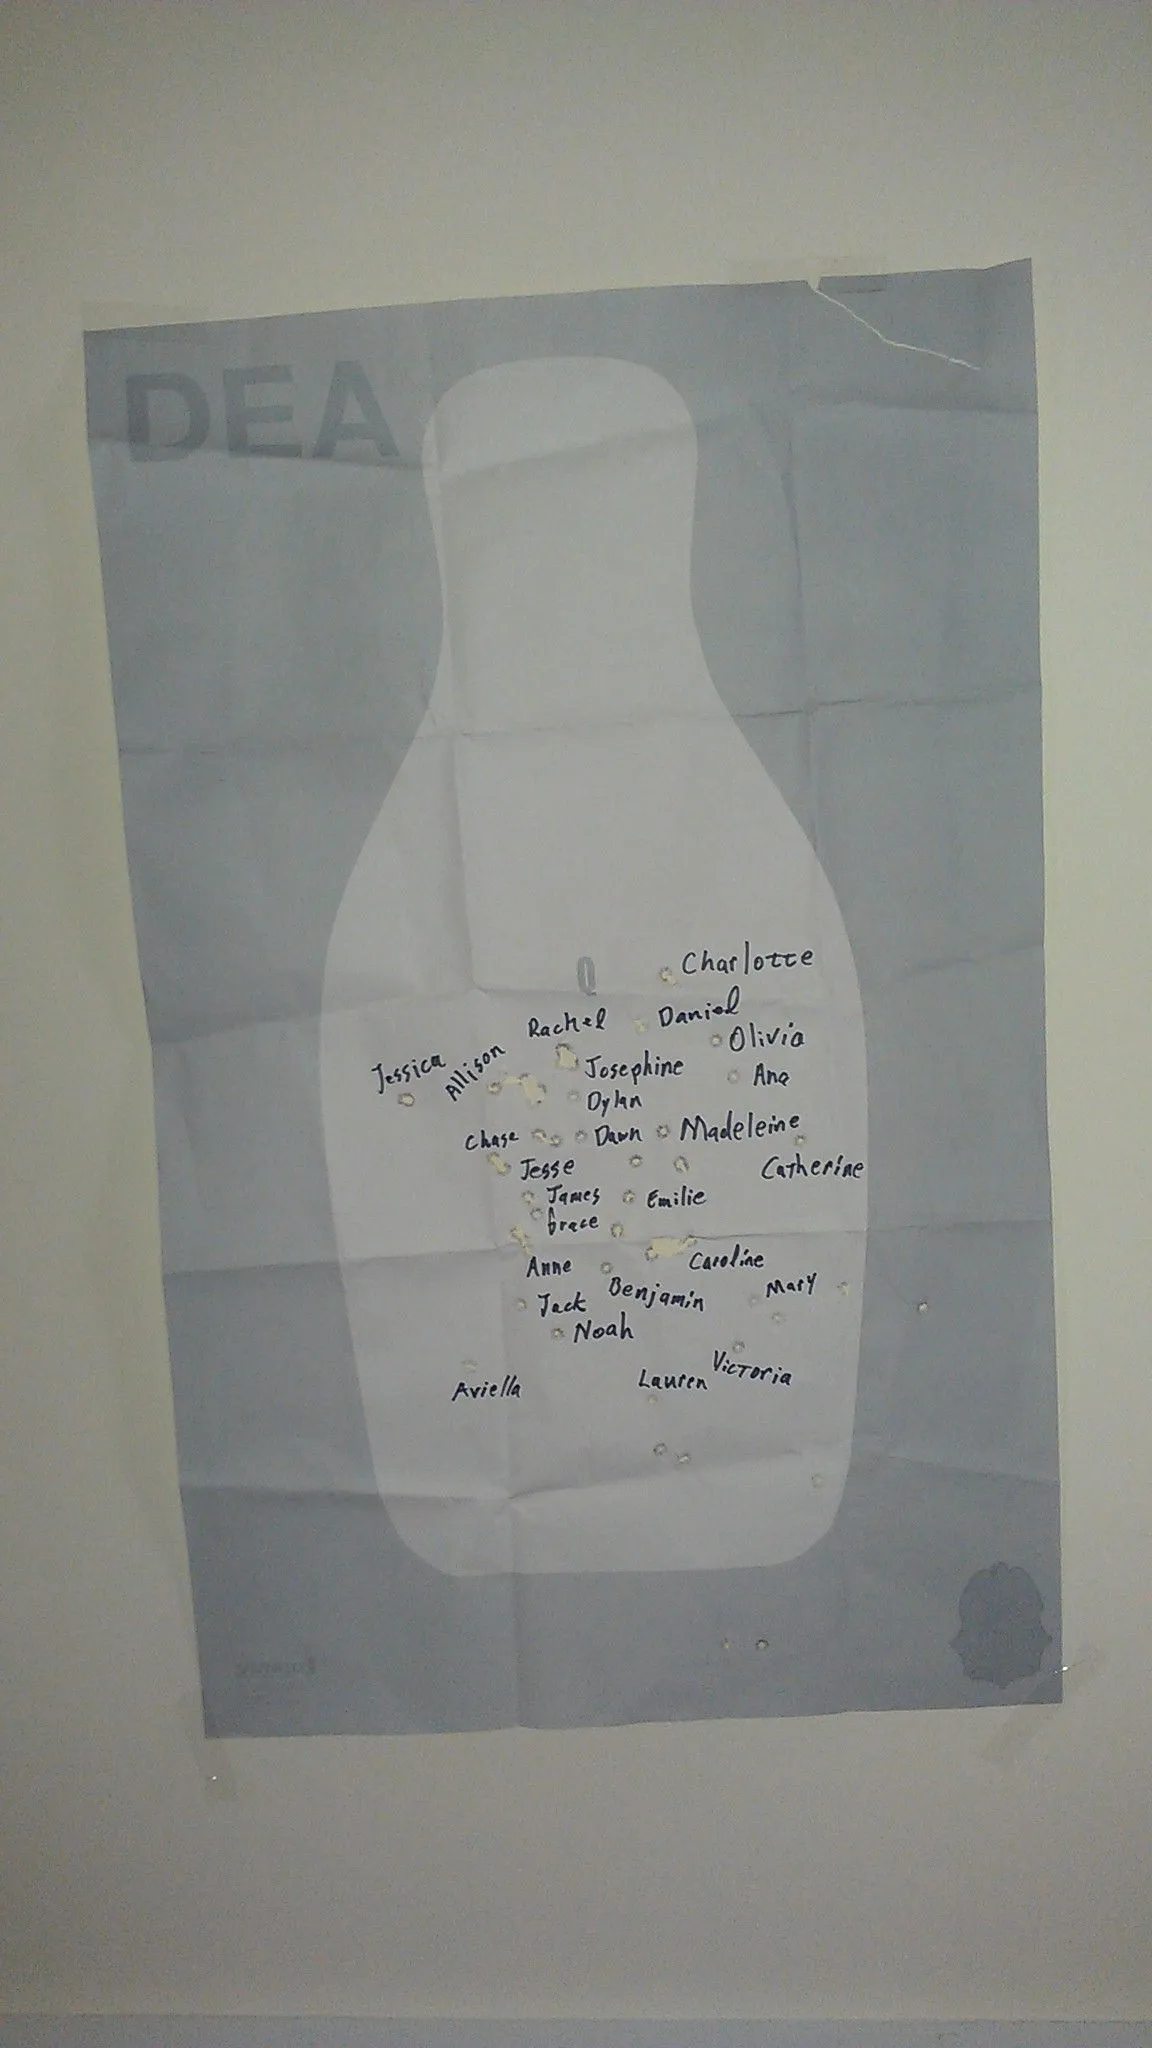 DEA
Q
Charlotte
Rachel
Daniel
Olivia
Jessica
Allison
Josephine
Ana
Dylan
Chase
Dawn
Madeleine
Jesse
Catherine
James
Emilie
Grace
Anne
Caroline
Jack
Benjamin
Mary
Noah
Aviella
Lauren
Victoria